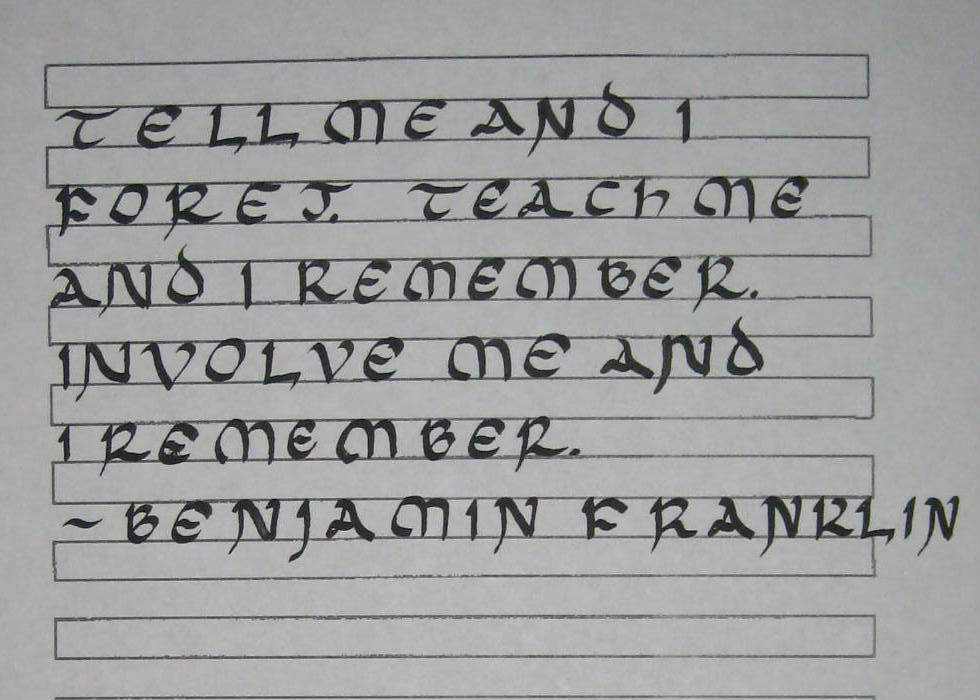 TELL ME AND I
FORET. TEACH ME
AND I REMEMBER.
INVOLVE ME AND
I REMEMBER.
~BENJAMIN FRANKLIN